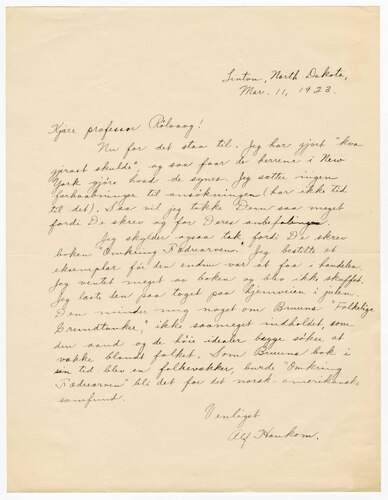 Linton, North Dakota,
Mar. 11, 1923.
Kjære professor Rölvaag!
Nu for det staa til. Jeg har gjort "kva
gjerast skulde", og saa faar de herrene i New
York gjöre hvad de synes. Jeg sætter ingen
forhaabninger til ansökningen (har ikke tid
til det). Saa vil jeg takke Dem saa meget
fordi De skrev og for Deres anbefaling
Jeg skylder ogsaa tak fordi De skrev
boken "Omkring Fædrearven." Jeg bestilte et
eksemplar för den endnu var at faa i handelen.
Jeg ventet meget av boken og blev ikke skuffet.
Jeg læste den paa toget paa hjemveien i julen.
Den minder mig noget om Bruuns "Folkelige
Grundtanker," ikke saameget indholdet, som
den aand og de höie idealer begge söker at
vække blandt folket. Som Bruuns bok i
sin tid blev en folkevækker, burde "Omkring
Fædrearven" bli det for det norsk-amerikanske
samfund.
Venligst
Alf Houkom.